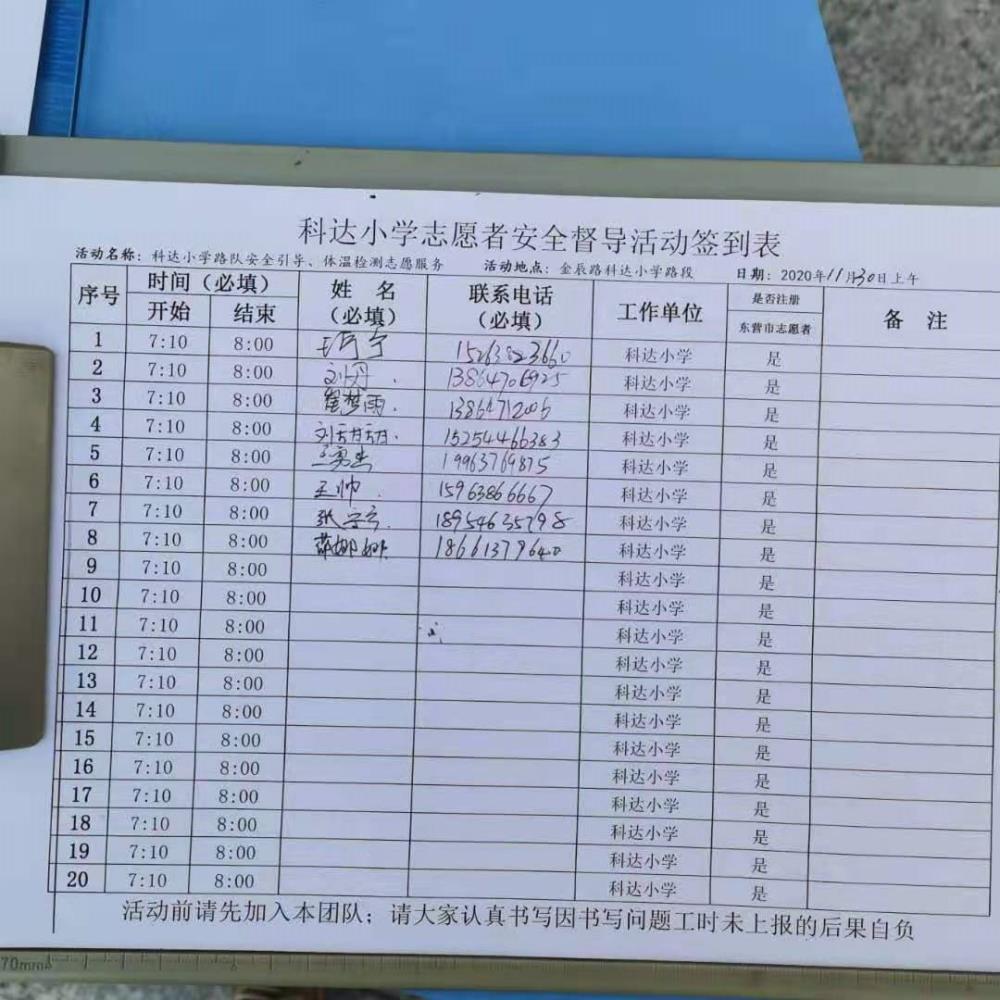 科达小学志愿者安全督导活动签到表
活动名称：科达小学路队安全引导、体温检测志愿服务 活动地点：金辰路科达小学路段 日期：2020年11月30日上午
序号 时间（必填） 姓 名（必填） 联系电话（必填） 工作单位 是否注册东营市志愿者 备 注
开始 结束
1 7:10 8:00 15263823660 科达小学 是
2 7:10 8:00 刘丹. 13864706925 科达小学 是
3 7:10 8:00 崔梦雨. 1386471206 科达小学 是
4 7:10 8:00 刘甜甜. 15254466383 科达小学 是
5 7:10 8:00 19963769875 科达小学 是
6 7:10 8:00 王帅. 15963866667 科达小学 是
7 7:10 8:00 18954635798 科达小学 是
8 7:10 8:00 薛娜娜. 18661379640 科达小学 是
9 7:10 8:00 科达小学 是
10 7:10 8:00 科达小学 是
11 7:10 8:00 科达小学 是
12 7:10 8:00 科达小学 是
13 7:10 8:00 科达小学 是
14 7:10 8:00 科达小学 是
15 7:10 8:00 科达小学 是
16 7:10 8:00 科达小学 是
17 7:10 8:00 科达小学 是
18 7:10 8:00 科达小学 是
19 7:10 8:00 科达小学 是
20 7:10 8:00 科达小学 是
活动前请先加入本团队；请大家认真书写因书写问题工时未上报的后果自负
70mm